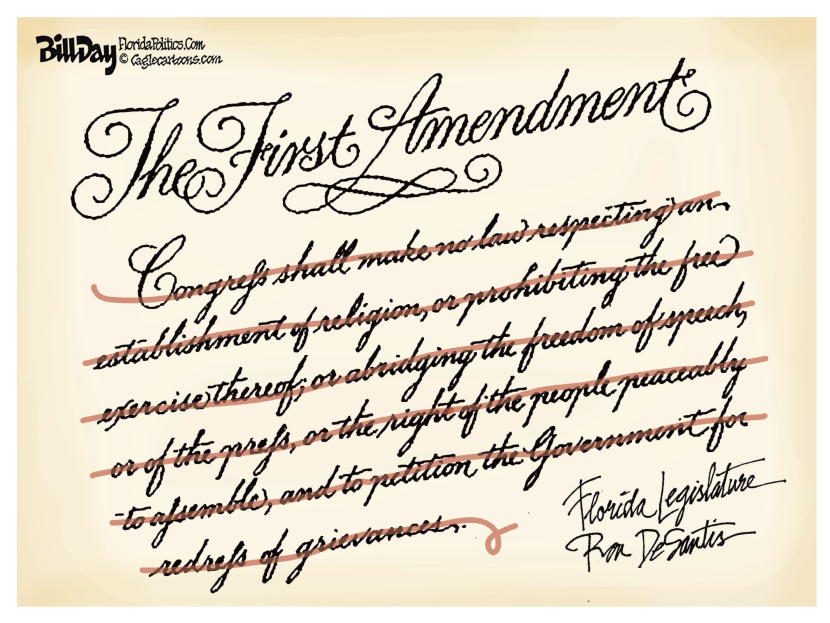 Bill Day FloridaPolitics.Com
© Caglecartoons.com
The First Amendment
Congreſs shall make no law respecting an
establishment of religion, or prohibiting the free
exercise thereof; or abridging the freedom of speech,
or of the preſs, or the right of the people peaceably
to aſsemble, and to petition the Government for
redreſs of grievances.
Florida Legislature
Ron DeSantis